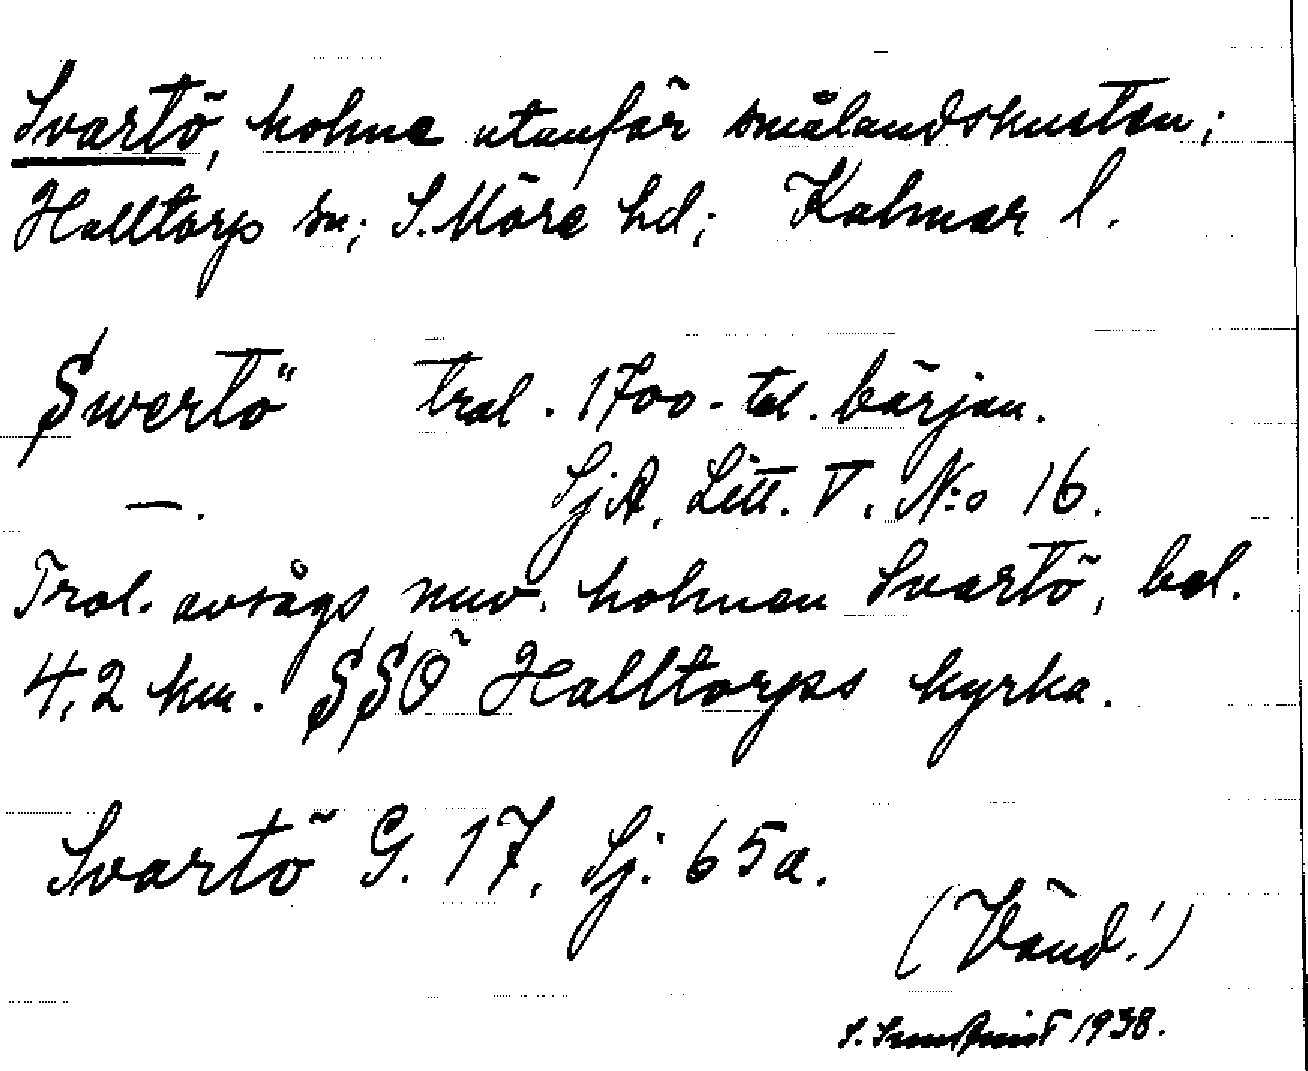 Svartö, holme utanför smålandskusten;
Halltorps sn; S. Möre hd; Kalmar l.
Swertö trol. 1700-tal. början.
—. SjA, Litt. V. N:o 16.
Trol. avsågs nuv. holmen Svartö, bel.
4,2 km. SSÖ Halltorps kyrka.
Svartö G. 17, Sj. 65a.
(Vänd!)
S. 1938.